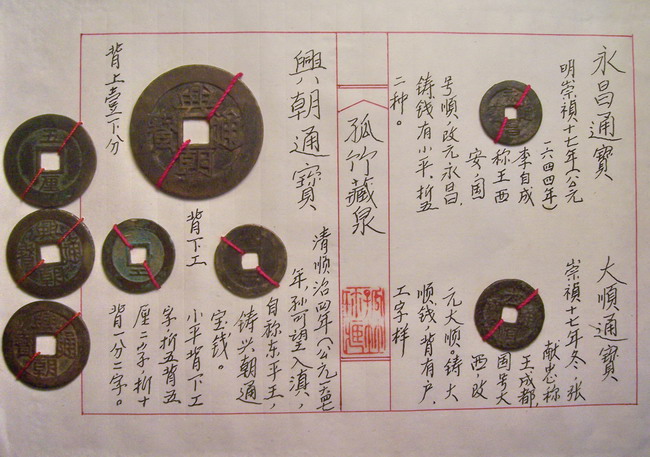 永昌通寶
明崇禎十七年(公元
六四四年)
李自成
称王西
安,国
号順,改元永昌,
铸钱有小平、折五
二种。
大順通寶
崇禎十七年冬,张
献忠称
王成都,
国号大
西,改
元大顺。铸大
顺钱,背有户,
工字样
孤竹藏泉
興、朝通寶
清顺治四年(公元一六四七
年,孙可望入滇,
自称东平王,
铸兴朝通
宝钱。
小平背下工
字折五背五
厘二子折十
背一分二字。
背下工
背上壹下分
興朝通寶
五厘
興朝通寶
工